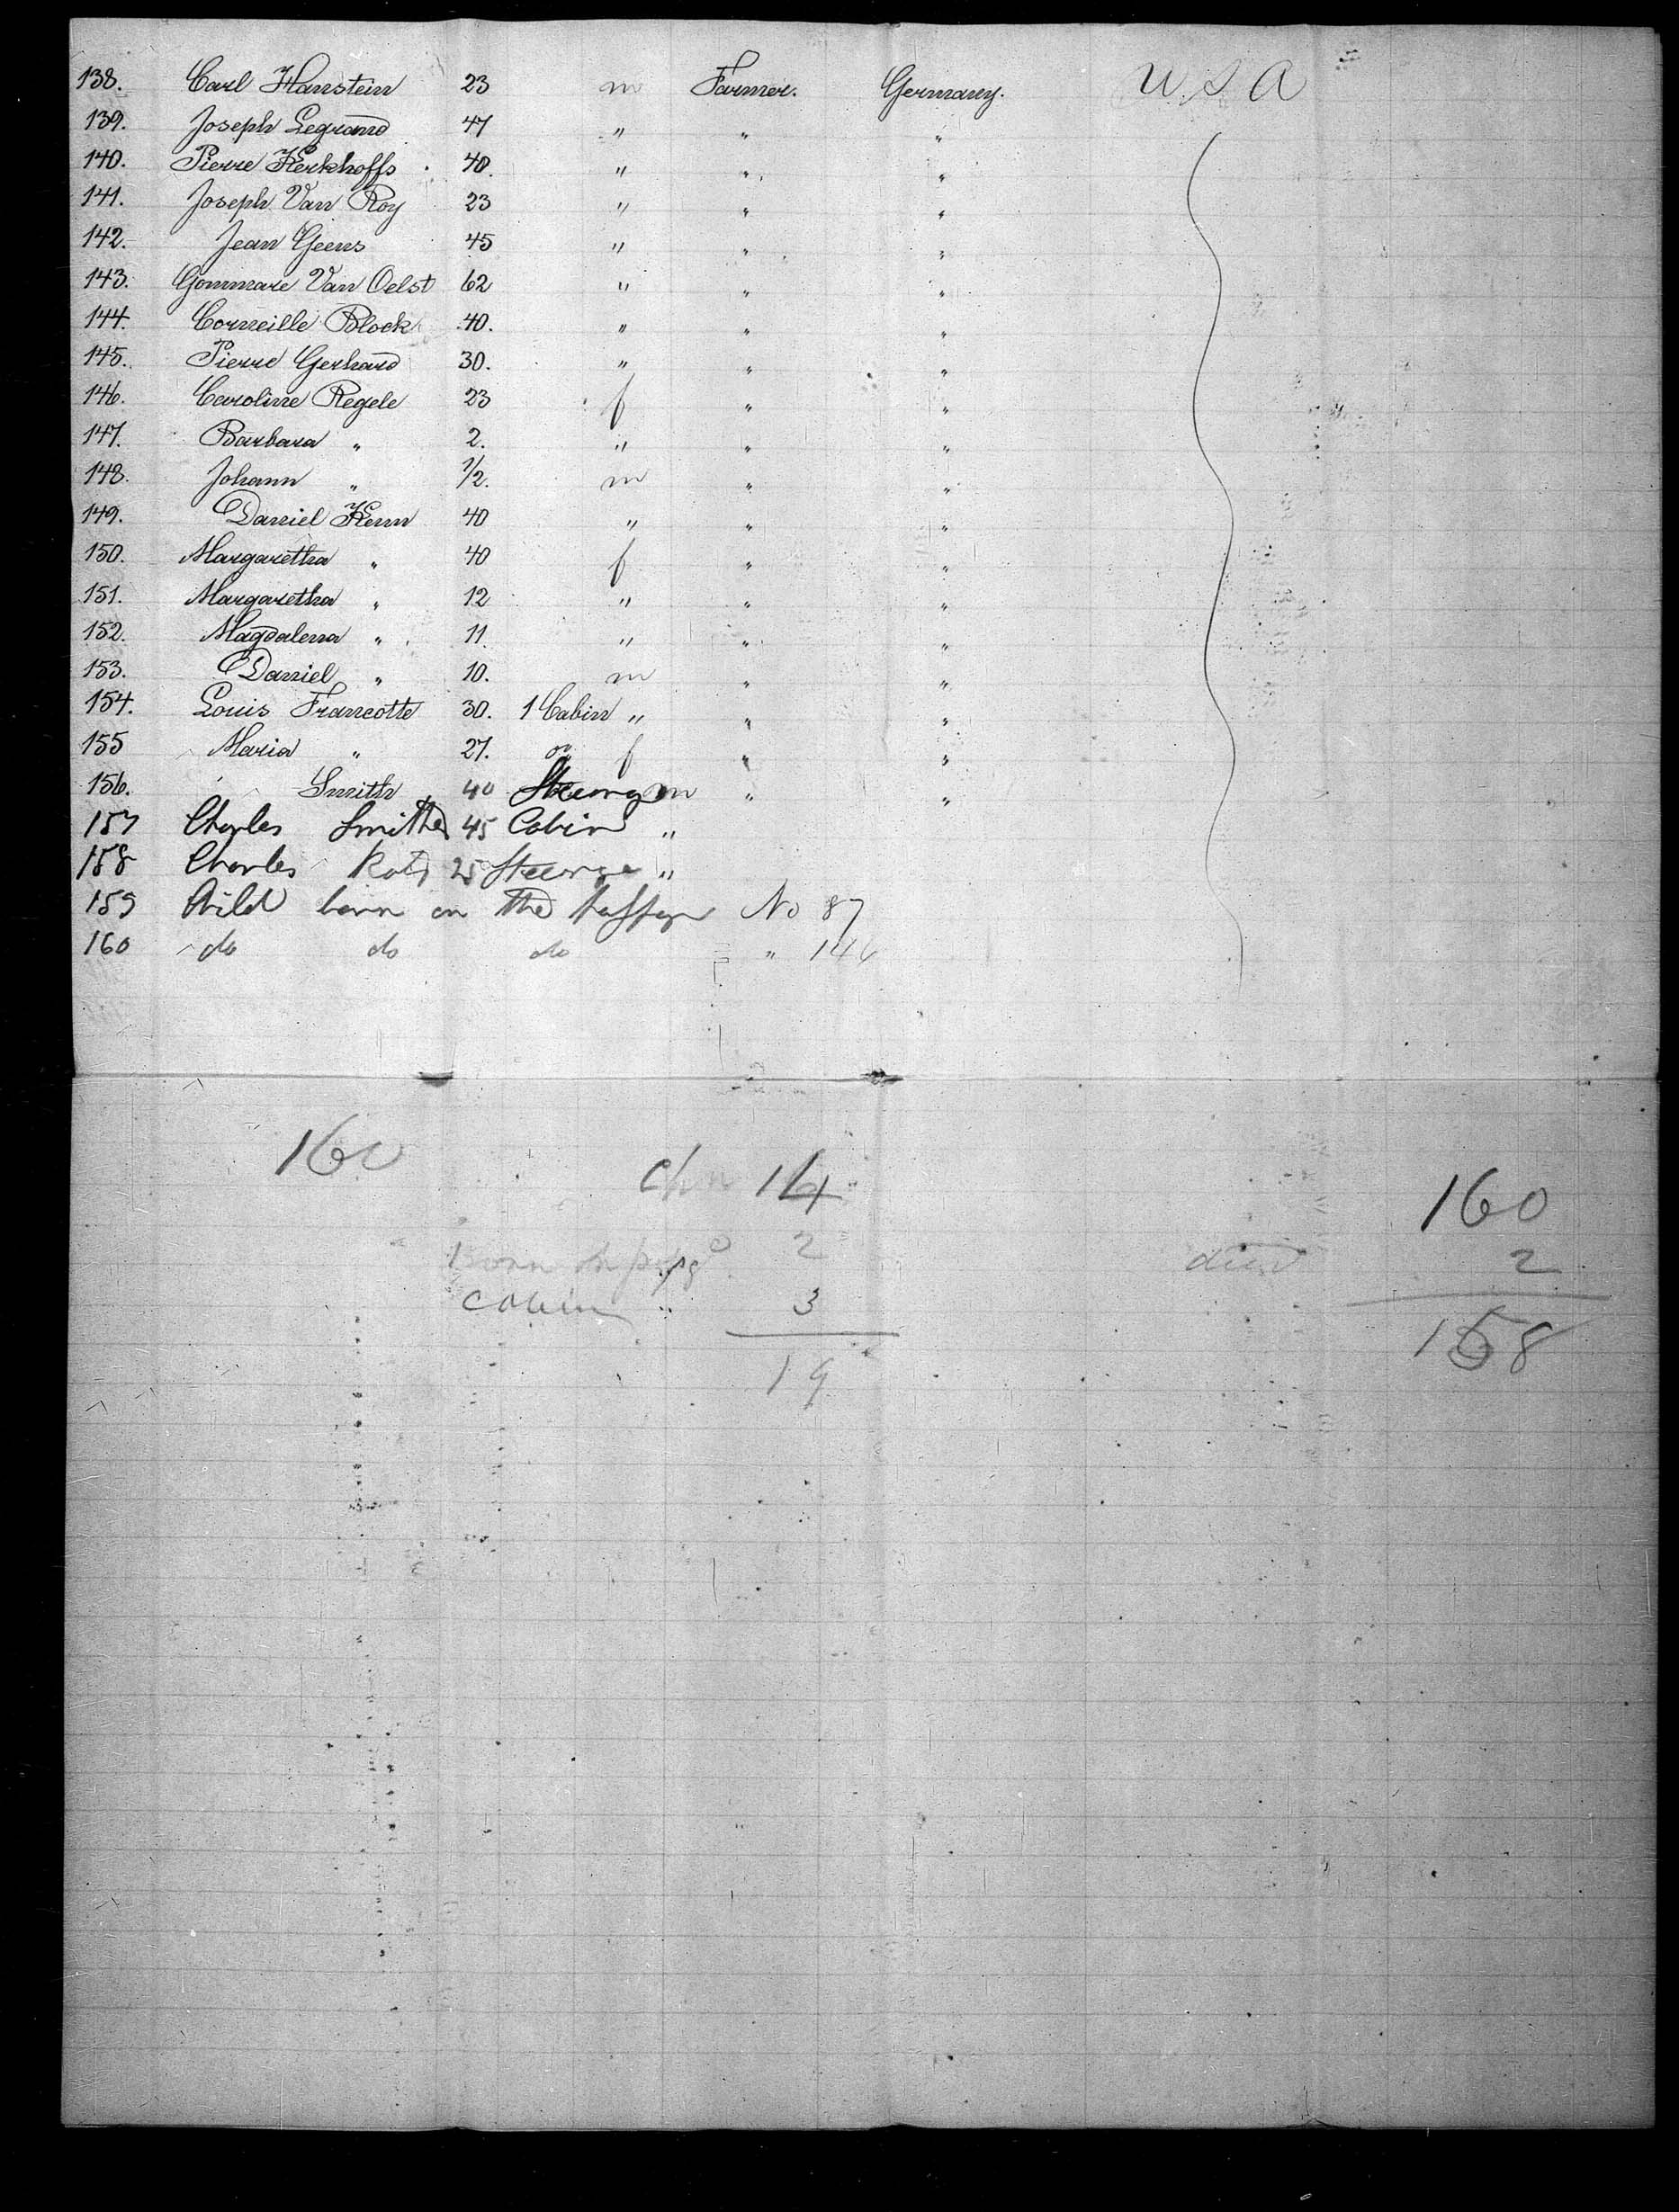 138. Carl Hanstein 23 m Farmer. Germany. U S A
139. Joseph Legrand 47 " " "
140. Pierre Kerkhoffs 40. " " "
141. Joseph Van Roy 23 " " "
142. Jean Geens 45 " " "
143. Gommare Van Oelst 62 " " "
144. Corneille Block 40. " " "
145. Pierre Gerhard 30. " " "
146. Caroline Regele 23 f " "
147. Barbara " 2. " " "
148. Johann " 1/2. m " "
149. Daniel Kenn 40 " " "
150. Margaretha " 40 f " "
151. Margaretha " 12 " " "
152. Magdalena " 11. " " "
153. Daniel " 10. m " "
154. Louis Francotte 30. 1 Cabin " " "
155 Maria " 27. f " "
156. Smith 40 Steerage m " "
157 Charles Smith 45 Cabin "
158 Charles 25 Steerage "
159 Child born on the No 87
160 do do do " 146
160
chn 14
Born 2
Cabin " 3
19
160
died 2
158